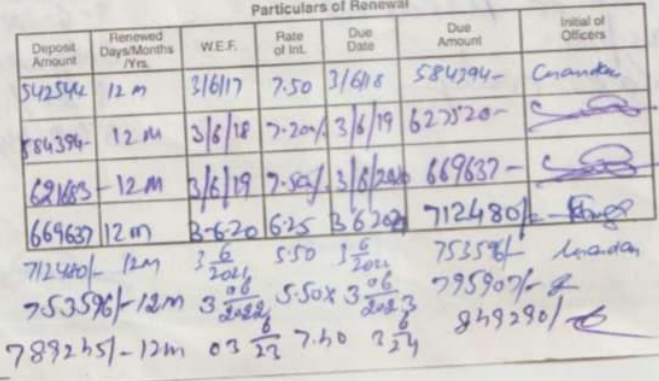 Particulars of Renewal
Deposit Amount Renewed Days/Months /Yrs. W.E.F. Rate of Int. Due Date Due Amount Initial of Officers
542544 12 m 3/6/17 7.50 3/6/18 584394-
584394- 12 M 3/6/18 7.20% 3/6/19 627520-
621683 - 12 M 3/6/19 7.50% 3/6/2020 669637 -
669637 12 m 3-6-20 6.25 3 6 2021 712480/-
712480/- 12m 3 6/2021 5.50 3 6/2022 753596/-
753596/- 12m 3 06/2022 5.50% 3 06/2023 795907/-
789245/- 12m 03 6/23 7.40 3 6/24 849290/-